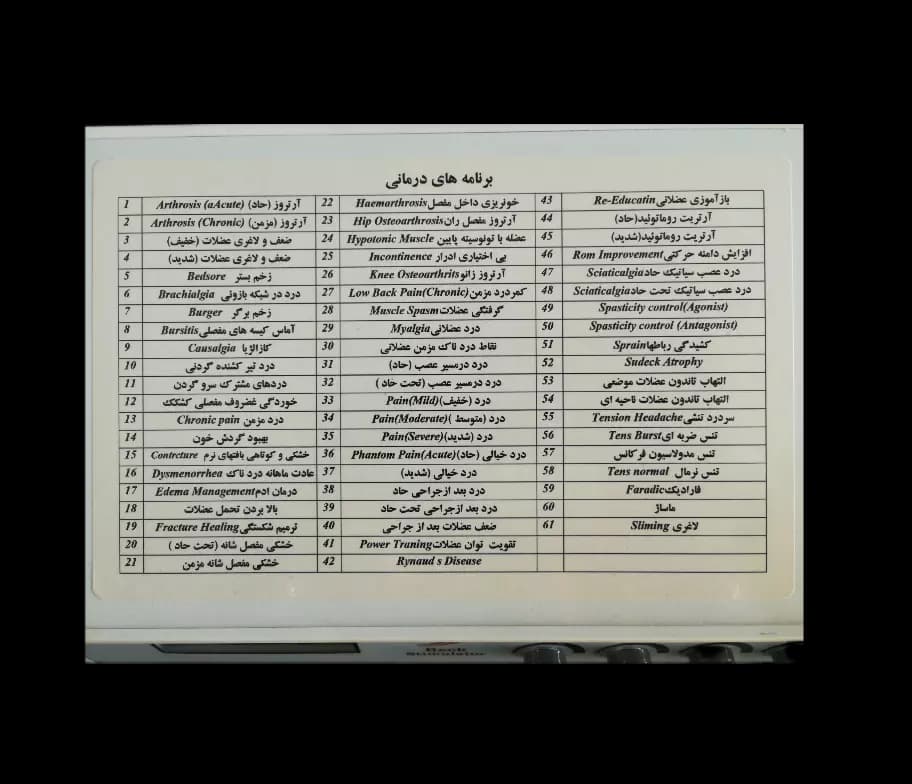 برنامه های درمانی
1 Arthrosis (aAcute) آرتروز (حاد)
2 Arthrosis (Chronic) آرتروز (مزمن)
3 ضعف و لاغری عضلات (خفیف)
4 ضعف و لاغری عضلات (شدید)
5 Bedsore زخم بستر
6 Brachialgia درد در شبکه بازوئی
7 Burger زخم برگر
8 Bursitis آماس کیسه های مفصلی
9 Causalgia کازالژیا
10 درد تیر کشنده گردنی
11 دردهای مشترک سرو گردن
12 خوردگی غضروف مفصلی کشکک
13 Chronic pain درد مزمن
14 بهبود گردش خون
15 Contrcture خشکی و کوتاهی بافتهای نرم
16 Dysmenorrhea عادت ماهانه درد ناک
17 Edema Management درمان ادم
18 بالا بردن تحمل عضلات
19 Fracture Healing ترمیم شکستگی
20 خشکی مفصل شانه (تحت حاد )
21 خشکی مفصل شانه مزمن
22 Haemarthrosis خونریزی داخل مفصل
23 Hip Osteoarthrosis آرتروز مفصل ران
24 Hypotonic Muscle عضله با تونوسیته پایین
25 Incontinence بی اختیاری ادرار
26 Knee Osteoarthrits آرتروز زانو
27 Low Back Pain(Chronic) کمردرد مزمن
28 Muscle Spasm گرفتگی عضلات
29 Myalgia درد عضلانی
30 نقاط درد ناک مزمن عضلانی
31 درد درمسیر عصب (حاد)
32 درد درمسیر عصب (تحت حاد )
33 Pain(Mild) درد (خفیف)
34 Pain(Moderate) درد (متوسط )
35 Pain(Severe) درد (شدید)
36 Phantom Pain(Acute) درد خیالی (حاد)
37 درد خیالی (شدید)
38 درد بعد ازجراحی حاد
39 درد بعد ازجراحی تحت حاد
40 ضعف عضلات بعد از جراحی
41 Power Traning تقویت توان عضلات
42 Rynaud s Disease
43 Re-Educatin بازآموزی عضلانی
44 آرتریت روماتوئید(حاد)
45 آرتریت روماتوئید(شدید)
46 Rom Improvement افزایش دامنه حرکتی
47 Sciaticalgia درد عصب سیاتیک حاد
48 Sciaticalgia درد عصب سیاتیک تحت حاد
49 Spasticity control(Agonist)
50 Spasticity control (Antagonist)
51 Sprain کشیدگی رباطها
52 Sudeck Atrophy
53 التهاب تاندون عضلات موضعی
54 التهاب تاندون عضلات ناحیه ای
55 Tension Headache سردرد تنشی
56 Tens Burst تنس ضربه ای
57 تنس مدولاسیون فرکانس
58 Tens normal تنس نرمال
59 Faradic فارادیک
60 ماساژ
61 Sliming لاغری
Stimulator